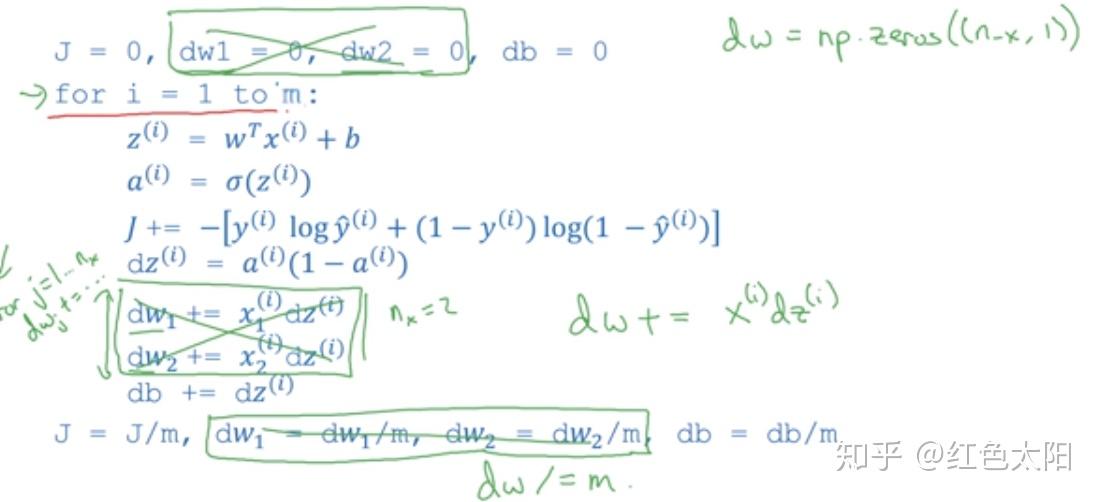 J = 0, dw1 = 0, dw2 = 0, db = 0
dw = np.zeros((n-x, 1))
→ for i = 1 to m:
z⁽ⁱ⁾ = wᵀx⁽ⁱ⁾ + b
a⁽ⁱ⁾ = σ(z⁽ⁱ⁾)
J += −[y⁽ⁱ⁾ log ŷ⁽ⁱ⁾ + (1 − y⁽ⁱ⁾) log(1 − ŷ⁽ⁱ⁾)]
dz⁽ⁱ⁾ = a⁽ⁱ⁾(1 − a⁽ⁱ⁾)
for j=1...nₓ
dwⱼ += ...
dw₁ += x₁⁽ⁱ⁾dz⁽ⁱ⁾
dw₂ += x₂⁽ⁱ⁾dz⁽ⁱ⁾
nₓ = 2
dw += x⁽ⁱ⁾dz⁽ⁱ⁾
db += dz⁽ⁱ⁾
J = J/m, dw₁ = dw₁/m, dw₂ = dw₂/m, db = db/m
dw /= m.
知乎 @红色太阳